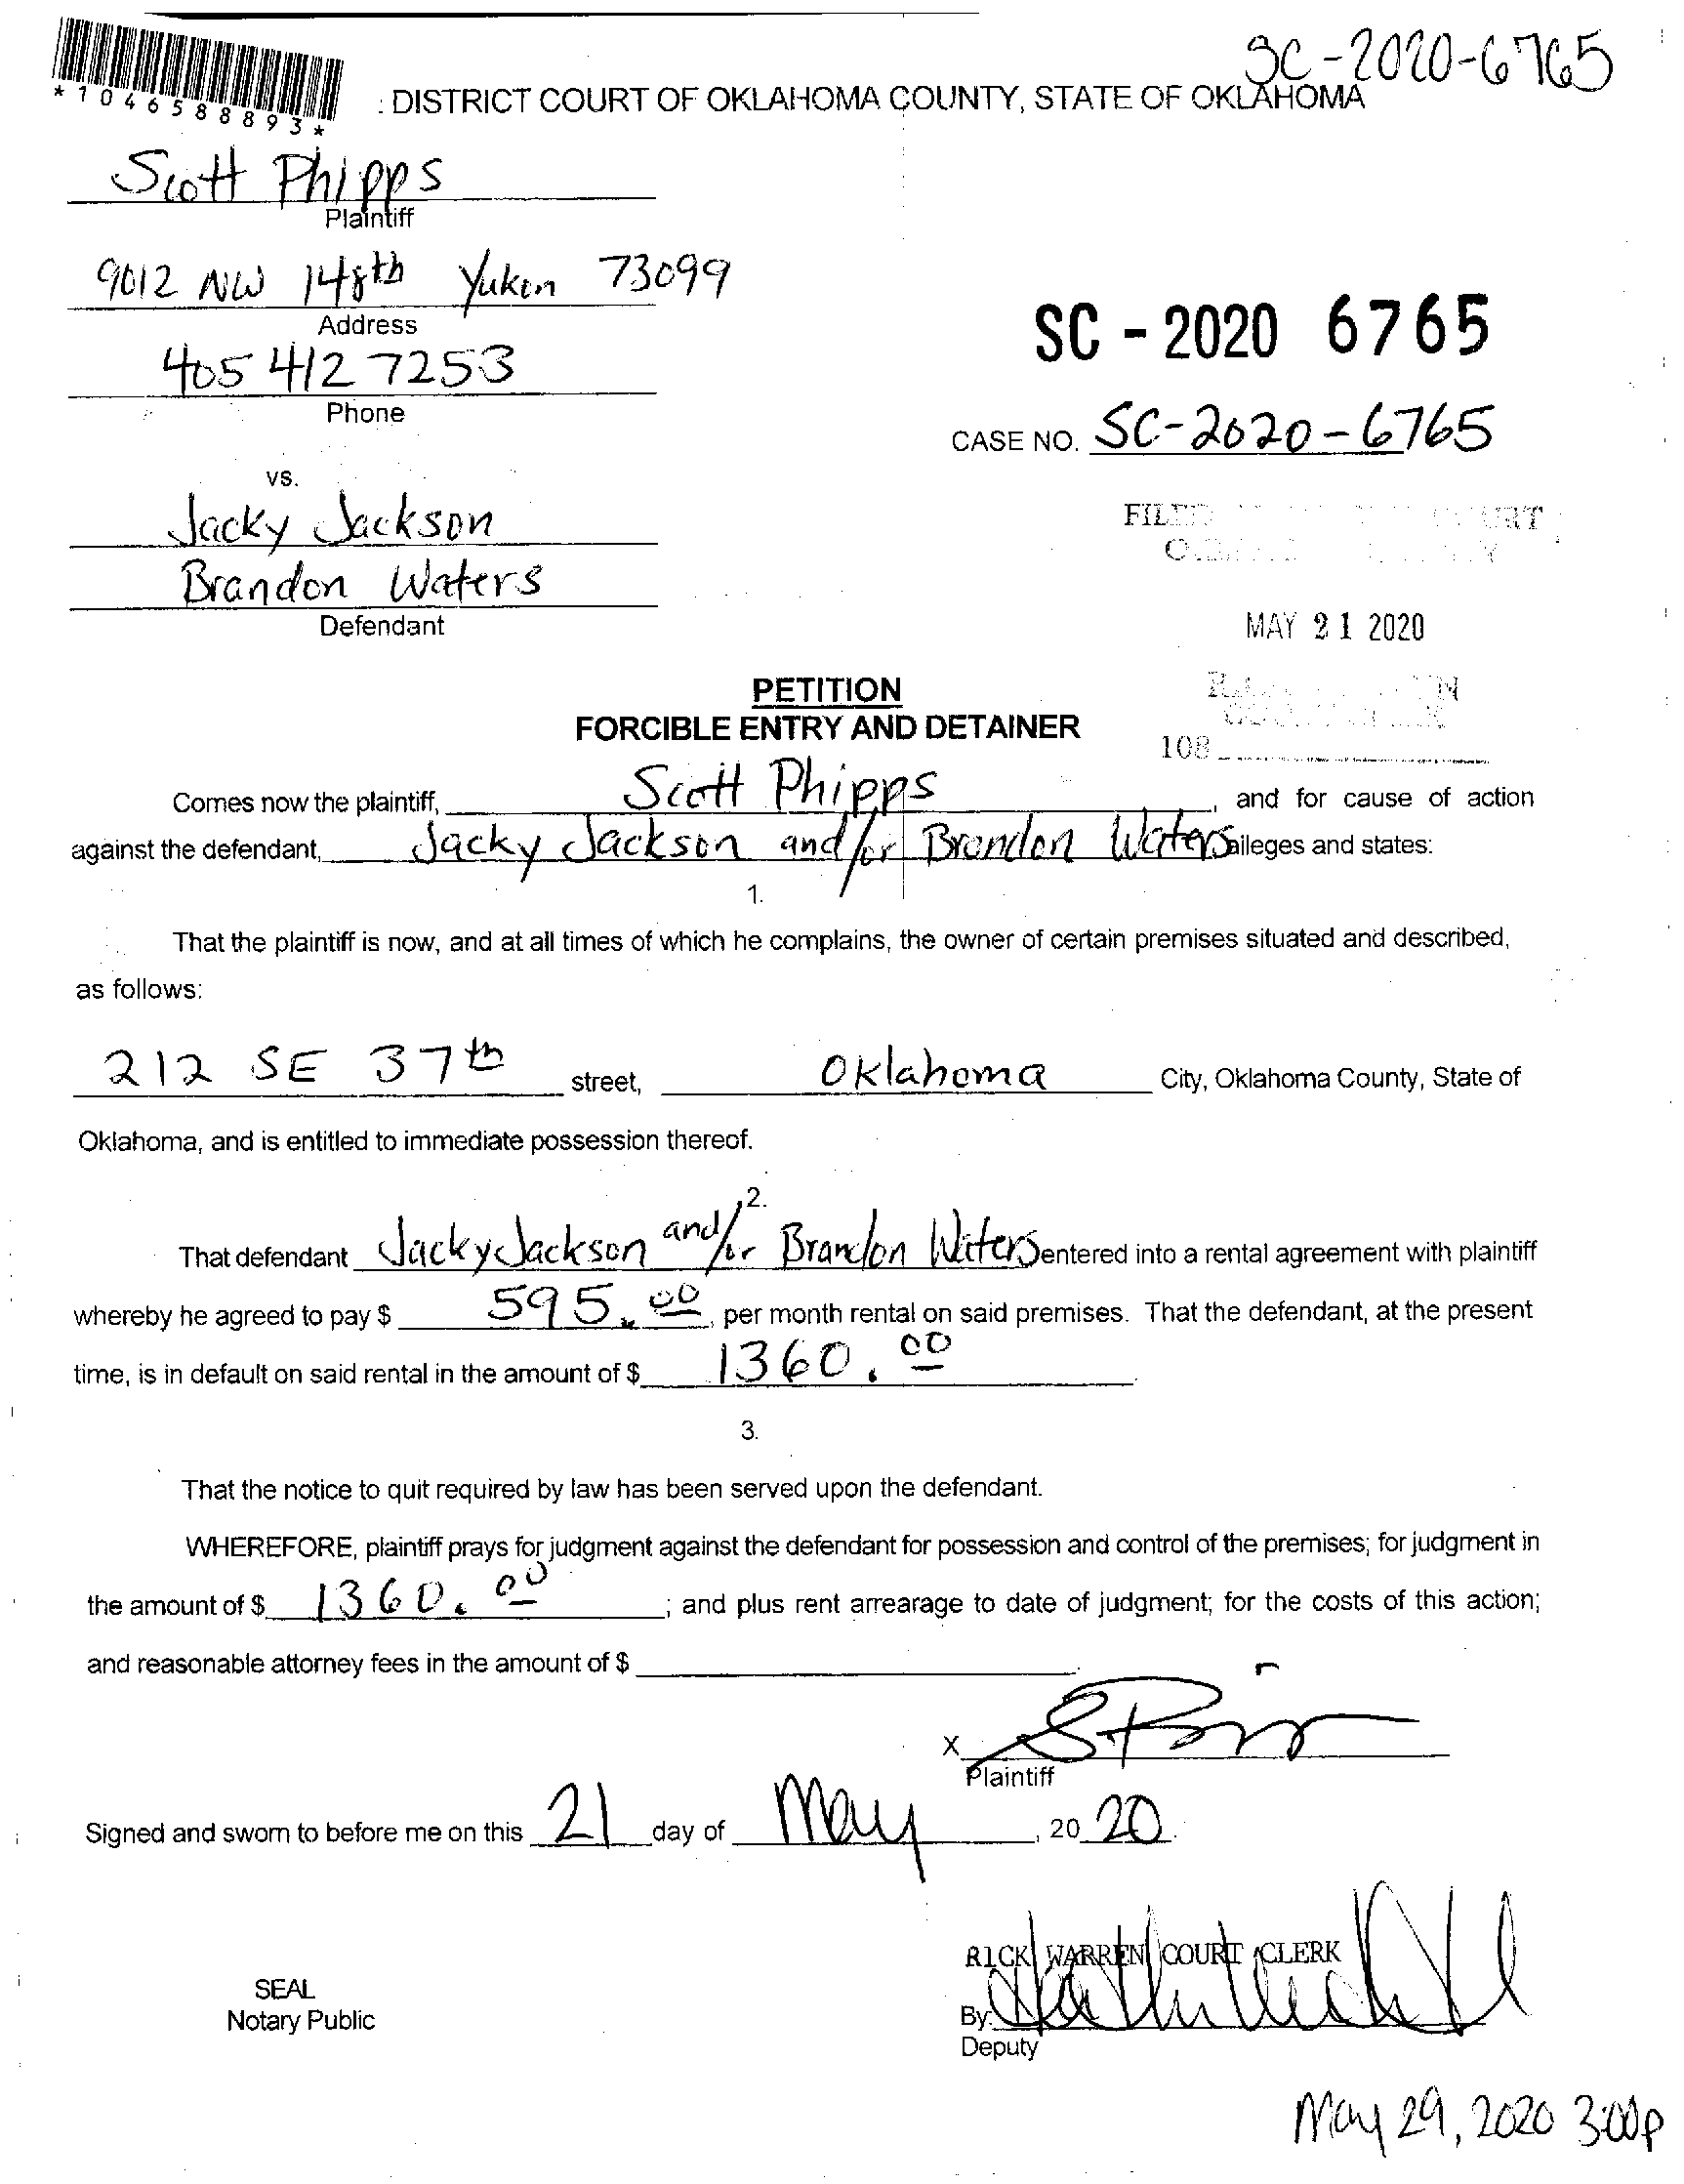 SC-2020-6765
*1046588893*
DISTRICT COURT OF OKLAHOMA COUNTY, STATE OF OKLAHOMA
Scott Phipps
Plaintiff
9012 NW 148th Yukon 73099
Address
SC - 2020 6765
405 412 7253
Phone
CASE NO. SC-2020-6765
vs.
Jacky Jackson
Brandon Waters
Defendant
MAY 21 2020
PETITION
FORCIBLE ENTRY AND DETAINER
108
Comes now the plaintiff, Scott Phipps, and for cause of action
against the defendant, Jacky Jackson and/or Brandon Waters alleges and states:
1.
That the plaintiff is now, and at all times of which he complains, the owner of certain premises situated and described,
as follows:
212 SE 37th street, Oklahoma City, Oklahoma County, State of
Oklahoma, and is entitled to immediate possession thereof.
2.
That defendant Jacky Jackson and/or Brandon Waters entered into a rental agreement with plaintiff
whereby he agreed to pay $ 595.00, per month rental on said premises. That the defendant, at the present
time, is in default on said rental in the amount of $ 1360.00.
3.
That the notice to quit required by law has been served upon the defendant.
WHEREFORE, plaintiff prays for judgment against the defendant for possession and control of the premises; for judgment in
the amount of $ 1360.00; and plus rent arrearage to date of judgment; for the costs of this action;
and reasonable attorney fees in the amount of $
X
Plaintiff
Signed and sworn to before me on this 21 day of May, 2020.
RICK WARREN COURT CLERK
SEAL
Notary Public
By:
Deputy
May 29, 2020 3:00p